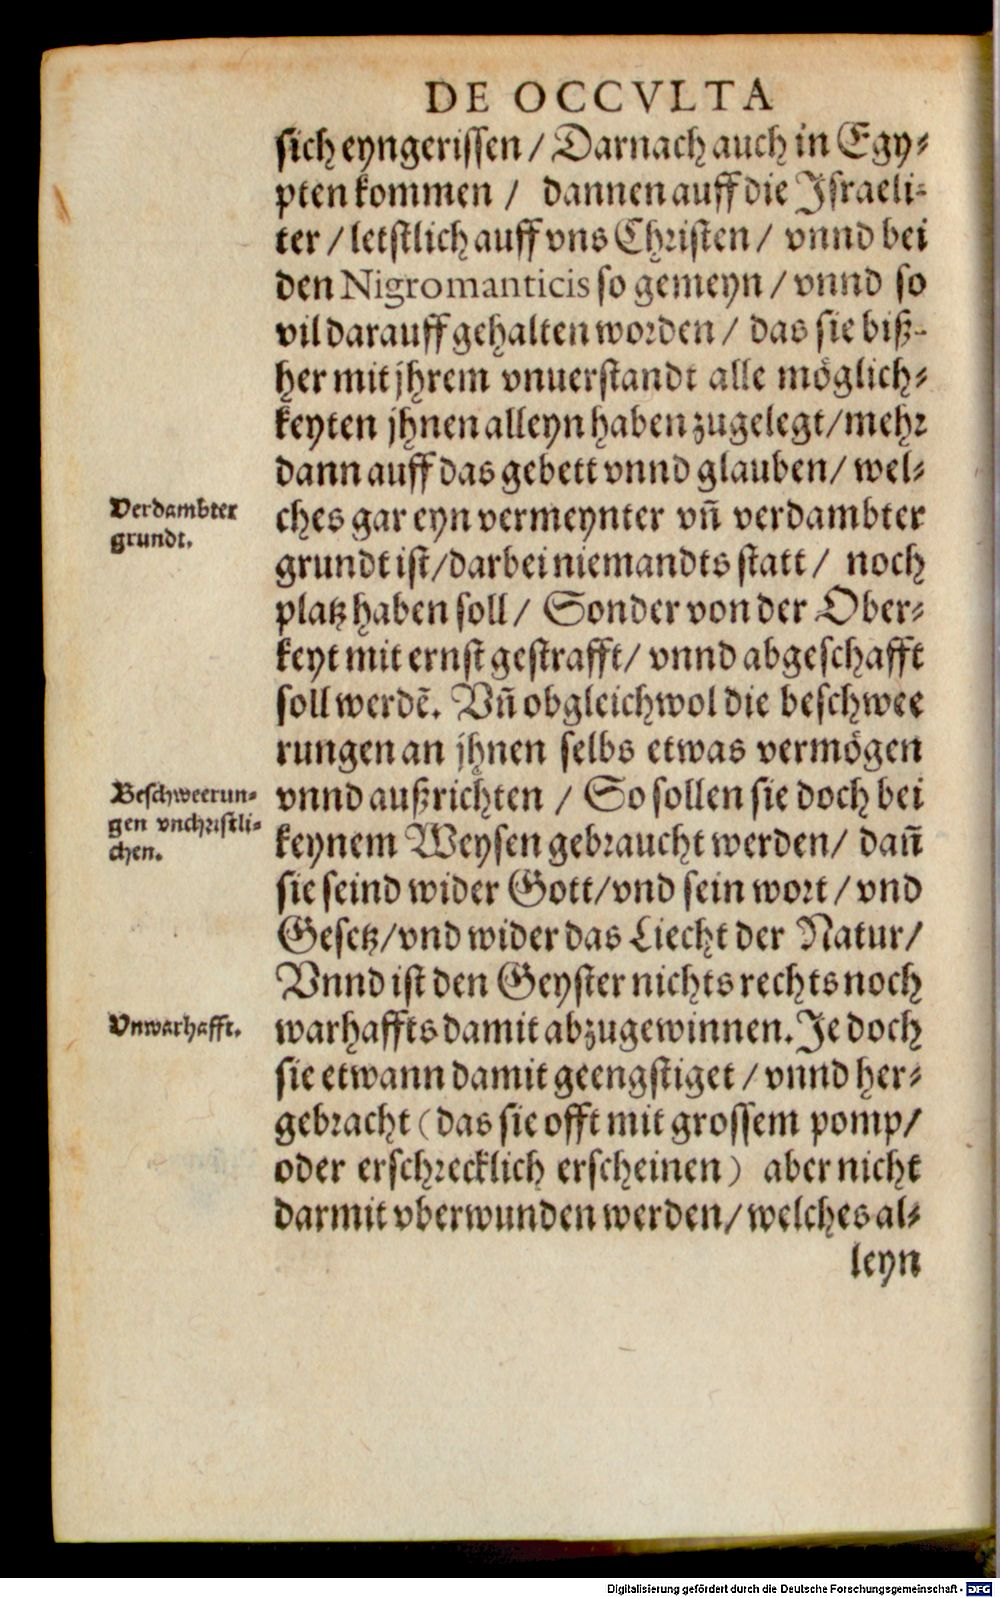 DE OCCVLTA
sich eyngerissen / Darnach auch in Egy⸗
pten kommen / dannen auff die Israeli⸗
ter / letstlich auff vns Christen / vnnd bei
den Nigromanticis so gemeyn / vnnd so
vil darauff gehalten worden / das sie biß⸗
her mit jhrem vnuerstandt alle möglich⸗
keyten jhnen alleyn haben zugelegt / mehr
dann auff das gebett vnnd glauben / wel⸗
Verdambter
grundt.
ches gar eyn vermeynter vñ verdambter
grundt ist / darbei niemandts statt / noch
platz haben soll / Sonder von der Ober⸗
keyt mit ernst gestrafft / vnnd abgeschafft
soll werdẽ. Vñ obgleichwol die beschwee
rungen an jhnen selbs etwas vermögen
Beschweerun⸗
gen vnchristli⸗
chen.
vnnd außrichten / So sollen sie doch bei
keynem Weysen gebraucht werden / dañ
sie seind wider Gott / vnd sein wort / vnd
Gesetz / vnd wider das Liecht der Natur /
Vnnd ist den Geyster nichts rechts noch
Vnwarhafft.
warhaffts damit abzugewinnen. Je doch
sie etwann damit geengstiget / vnnd her⸗
gebracht (das sie offt mit grossem pomp /
oder erschrecklich erscheinen) aber nicht
darmit vberwunden werden / welches al⸗
leyn
Digitalisierung gefördert durch die Deutsche Forschungsgemeinschaft - DFG